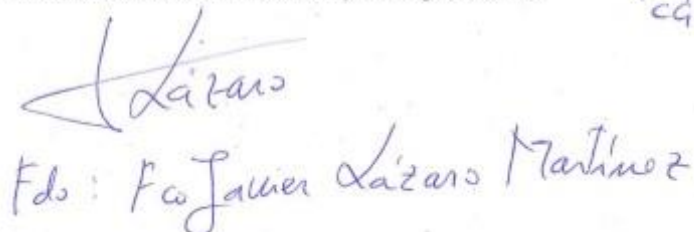 ca
Lázaro
Fdo: Fco Javier Lázaro Martínez